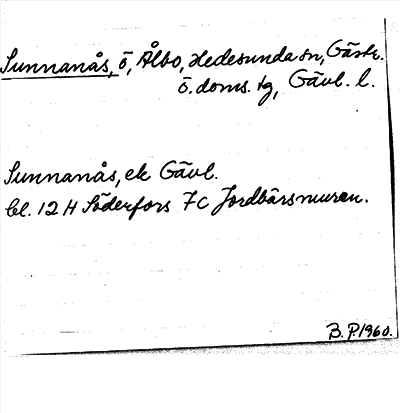 Sunnanås, ö, Ålbo, Hedesunda sn, Gästr.
ö. doms. tg, Gävl. l.
Sunnanås, ek Gävl.
bl. 12 H Söderfors 7c Jordbärsmuren.
B.P. 1960.